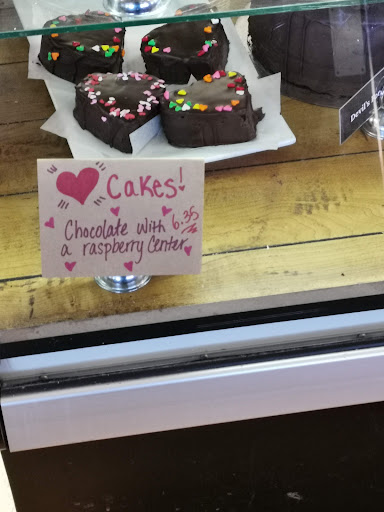 Cakes!
Chocolate with 6.35
a raspberry Center
Devil's